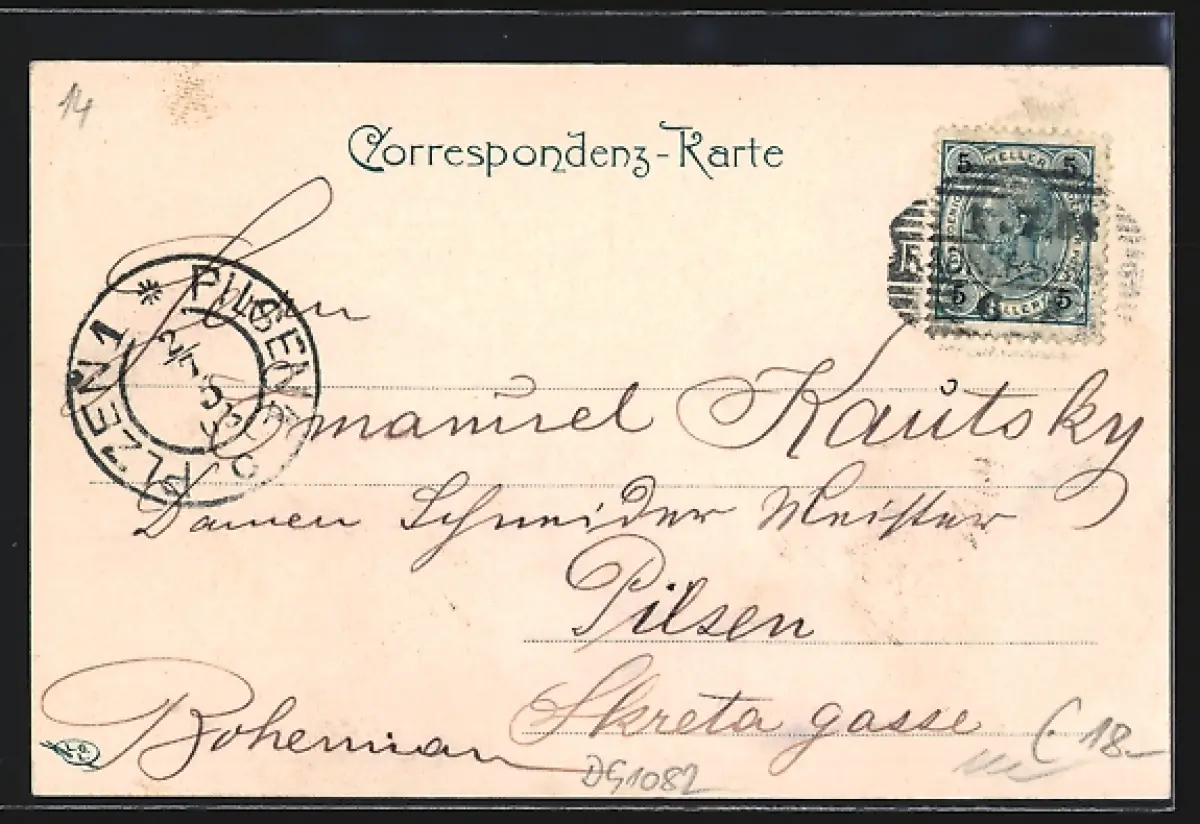 14
Correspondenz-Karte
5 HELLER 5
5 HELLER 5
PILSEN 1
PLZEŇ 1
2/7
Herrn
Emanuel Kautsky
Damen Schneider Meister
Pilsen
Skreta gasse
18.-
Bohemian
DG1082